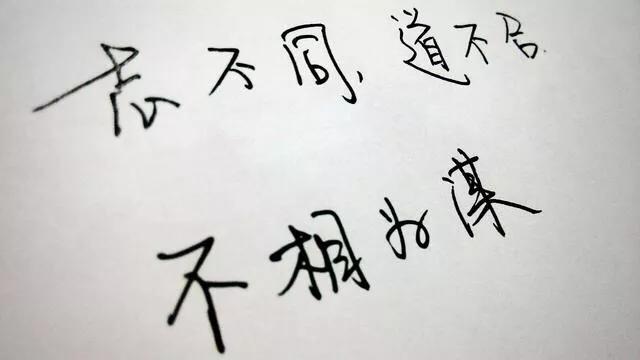 志不同、道不合.
不相为谋